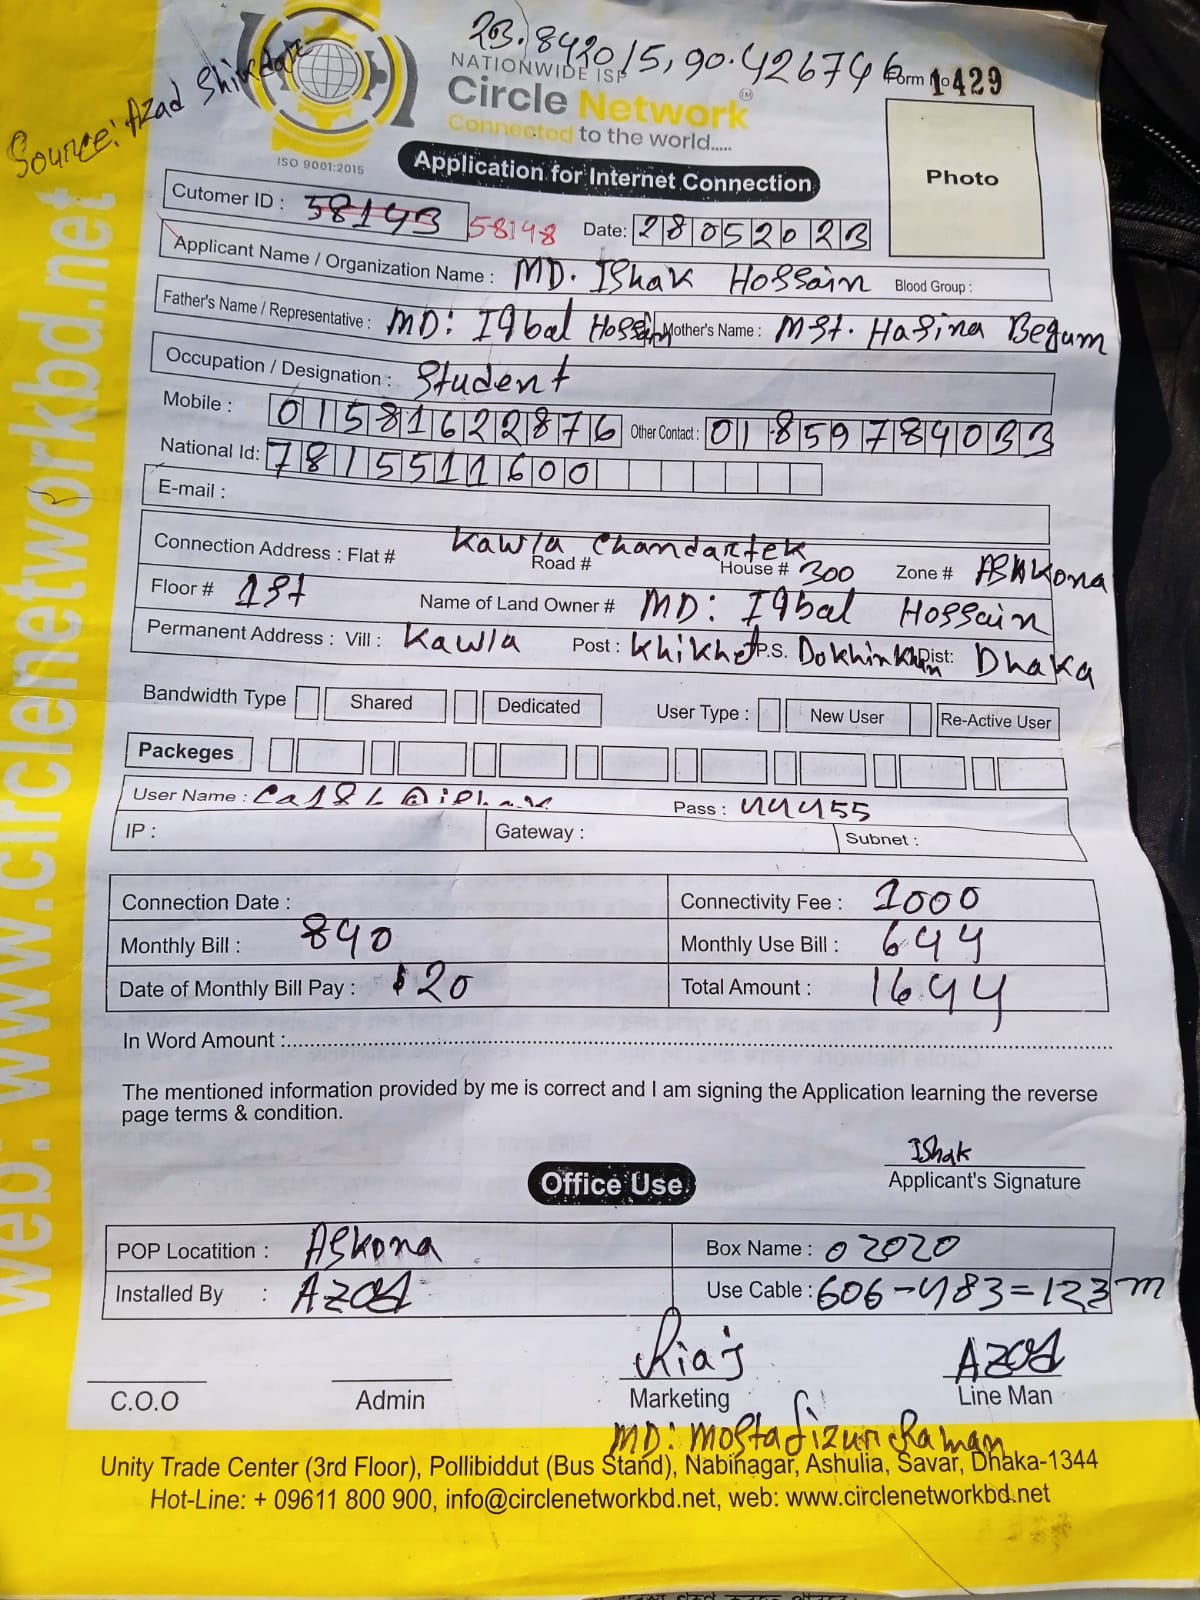 23.842015, 90.426746
Source: Azad Shikdar
NATIONWIDE ISP
Form No 1429
Circle Network TM
Connected to the world.....
ISO 9001:2015
Application for Internet Connection
Photo
Cutomer ID : 58143 58148 Date: 28052023
Applicant Name / Organization Name : MD. IShak Hossain Blood Group :
Father's Name / Representative : MD: Iqbal Hossain Mother's Name : Mst. Hasina Begum
Occupation / Designation : Student
Mobile : 01581622876 Other Contact : 01859784033
National Id: 7815511600
E-mail :
Connection Address : Flat # Kawla Chandartek Road # House # 300 Zone # AShkona
Floor # 1st Name of Land Owner # MD: Iqbal Hossain
Permanent Address : Vill : Kawla Post : Khikhet P.S. Dokhinkhan Dist: Dhaka
Bandwidth Type Shared Dedicated User Type : New User Re-Active User
Packeges
User Name : Pass : 44455
IP : Gateway : Subnet :
Connection Date : Connectivity Fee : 1000
Monthly Bill : 840 Monthly Use Bill : 644
Date of Monthly Bill Pay : 20 Total Amount : 1644
In Word Amount :
The mentioned information provided by me is correct and I am signing the Application learning the reverse
page terms & condition.
IShak
Applicant's Signature
Office Use
POP Locatition : ASkona Box Name : 02020
Installed By : Azad Use Cable : 606-483=123m
Riaj Azad
C.O.O Admin Marketing Line Man
MD: Mostafizur Rahman
Unity Trade Center (3rd Floor), Pollibiddut (Bus Stand), Nabinagar, Ashulia, Savar, Dhaka-1344
Hot-Line: + 09611 800 900, info@circlenetworkbd.net, web: www.circlenetworkbd.net
web: www.circlenetworkbd.net